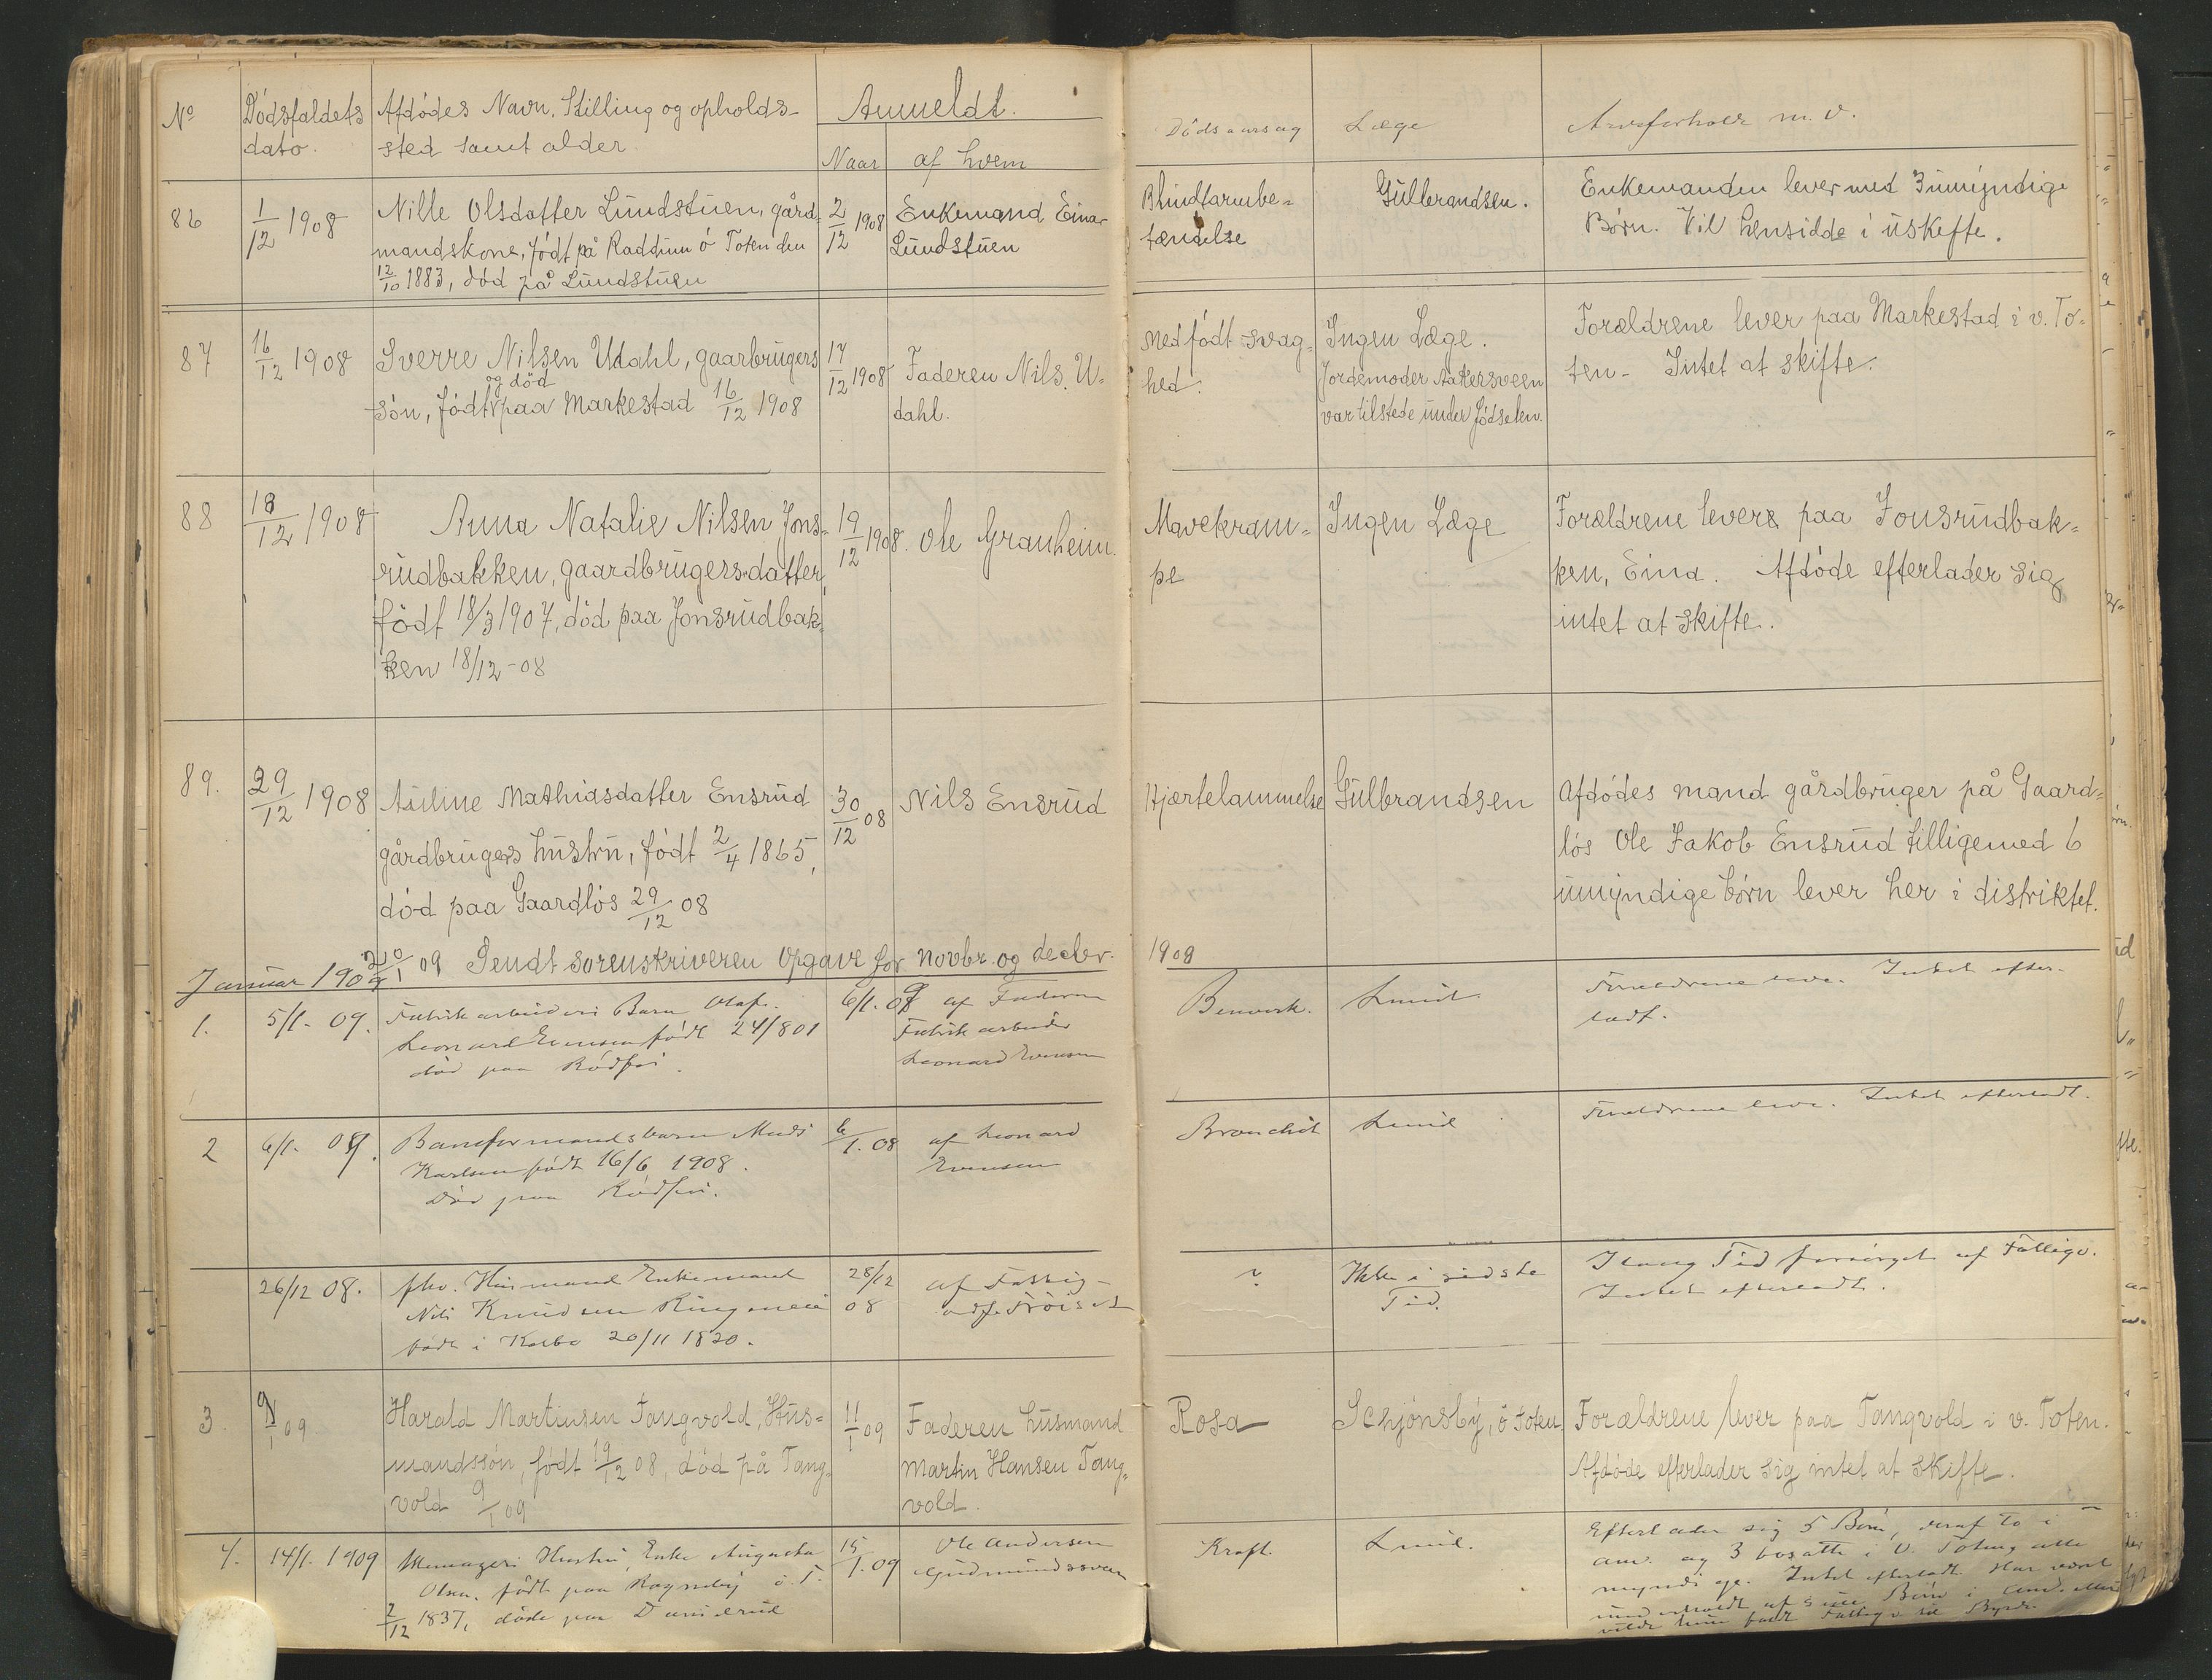 No
Dódsfaldets
dato.
Afdódes Navn, Stilling og opholds-
sted samt alder
Anmeldt.
Naar
af hvem
Dódsaarsag
Læge
Arveforhold m. v.
86
1/12 1908
Nille Olsdatter Lundstuen, gård-
mandskone, fódt på Raddum ó Toten den
12/10 1883, dód på Lundstuen
2/12 1908
Enkemand Einar
Lundstuen
Blindtarmbe-
tændelse
Gulbrandsen.
Enkemanden lever med 3 umyndige
Børn. Vil hensidde i uskifte.
87
16/12 1908
Sverre Nilsen Udahl, gaarbrugers
són, fódt og dód paa Markestad 16/12 1908
17/12 1908
Faderen Nils U-
dahl.
Medfódt svag-
hed.
Ingen Læge.
Jordemoder Aakersveen
var tilstede under fódselen.
Forældrene lever paa Markestad i v. To-
ten - Intet at skifte.
88
18/12 1908
Anna Natalie Nilsen Jons-
rudbakken, gaardbrugersdatter,
fódt 18/3 1907, dód paa Jonsrudbak-
ken 18/12-08
19/12 1908.
Ole Granheim.
Mavekram-
pe
Ingen Læge
Forældrene lever paa Jonsrudbak-
ken, Eina. Afdóde efterlader sig
intet at skifte.
89.
29/12 1908
Auline Mathiasdatter Ensrud
gårdbrugers hustru, fódt 2/4 1865,
dód paa Gaardlós 29/12 08
30/12 08
Nils Ensrud
Hjærtelammelse
Gulbrandsen
Afdódes mand gårdbruger på Gaard-
lós Ole Jakob Ensrud tilligemed 6
umyndige børn lever her i distriktet.
20/1 09 Sendt sorenskriveren Opgave for novbr. og decbr.
Januar 1909
1909
1.
5/1. 09.
Fabrikarbeider Barn Olaf
Leonard Evensen født 24/8 01
død paa Rødfos.
6/1. 09
af Faderen
Fabrikarbeider
Leonard Evensen
Lund
Forældrene leve. Intet efter-
ladt.
2
6/1. 09.
Karlsen født 16/6 1908.
Død paa Rødfos.
6/1. 08
af Leonard
Evensen
Bronchit
Lund
Forældrene leve. Intet efterladt.
26/12 08.
fhv. Husmand Enkemand
Nils Knudsen Ringeneie
født i Kolbo 20/11 1820.
28/12
08
af Fattig-
?
Ikke i sidste
Tid.
I lang Tid forsørget af Fattigv.
Intet efterladt.
3
9/1 09
Harald Martinsen Tangvold, Hus-
mandssón, fódt 19/12 08, dód på Tang-
vold 9/1 09
11/1 09
Faderen husmand
Martin Hansen Tang-
vold.
Rosa
Schjónsby, ó Toten.
Forældrene lever paa Tangvold i v. Toten.
Afdóde efterlader sig intet at skifte.
4.
14/1. 1909
Hustru, Enke Augusta
Olsen, født paa ó. T.
2/12 1837, døde paa
15/1. 09
Ole Andersen
Gudmundssveen
Kræft.
Lund.
Efterlader sig 5 Børn, deraf to i
Am. og 3 bosatte i V. Toten, alle
myndige. Intet efterladt. Har været
underholdt af sine Børn i Am.
vilde hun faldt Fattigv. til Byrde.